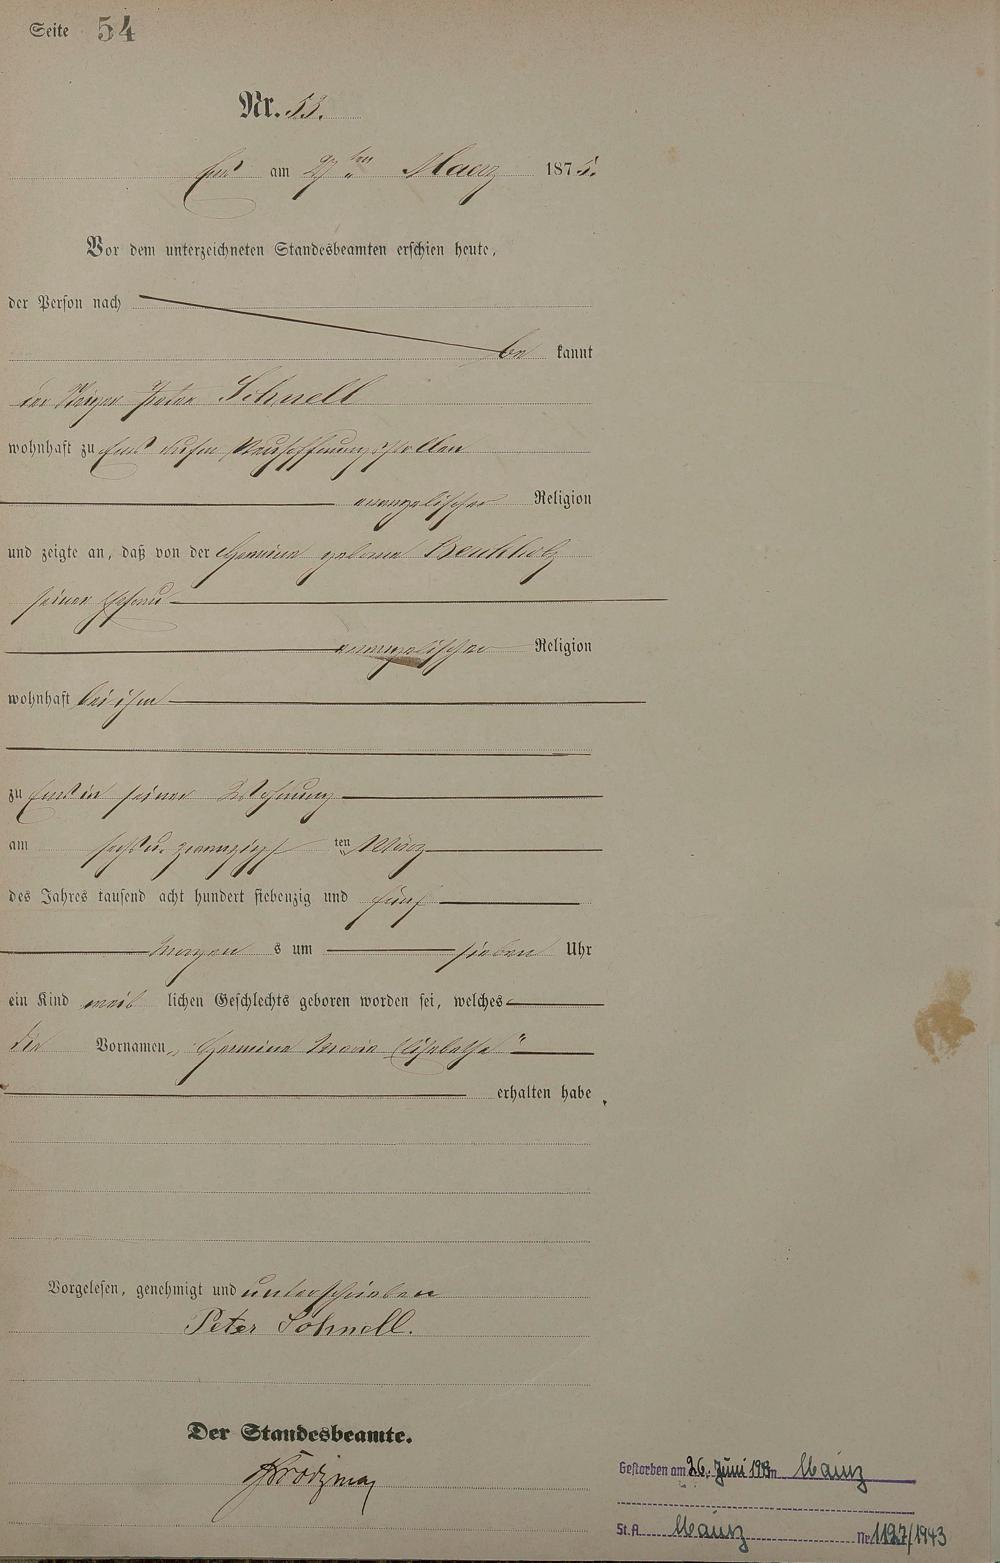 Seite 54
Nr. 53.
Ems am 27ten Maerz 1875.
Vor dem unterzeichneten Standesbeamten erschien heute,
der Person nach
be kannt
der Steiger Peter Schnell
wohnhaft zu Ems auf'm Neuhoffnungsstollen
evangelischer Religion
und zeigte an, daß von der Hermine geborne Benkholz
seiner Ehefrau
evangelischer Religion
wohnhaft bei ihm
zu Ems in seiner Wohnung
am sechs u. zwanzigsten März
des Jahres tausend acht hundert siebenzig und fünf
Morgens um sieben Uhr
ein Kind weiblichen Geschlechts geboren worden sei, welches
die Vornamen „Hermine Maria Elisabetha"
erhalten habe
Vorgelesen, genehmigt und unterschrieben
Peter Schnell.
Der Standesbeamte.
Gestorben am 26. Juni 1943 in Mainz
St.A. Mainz Nr. 1127/1943